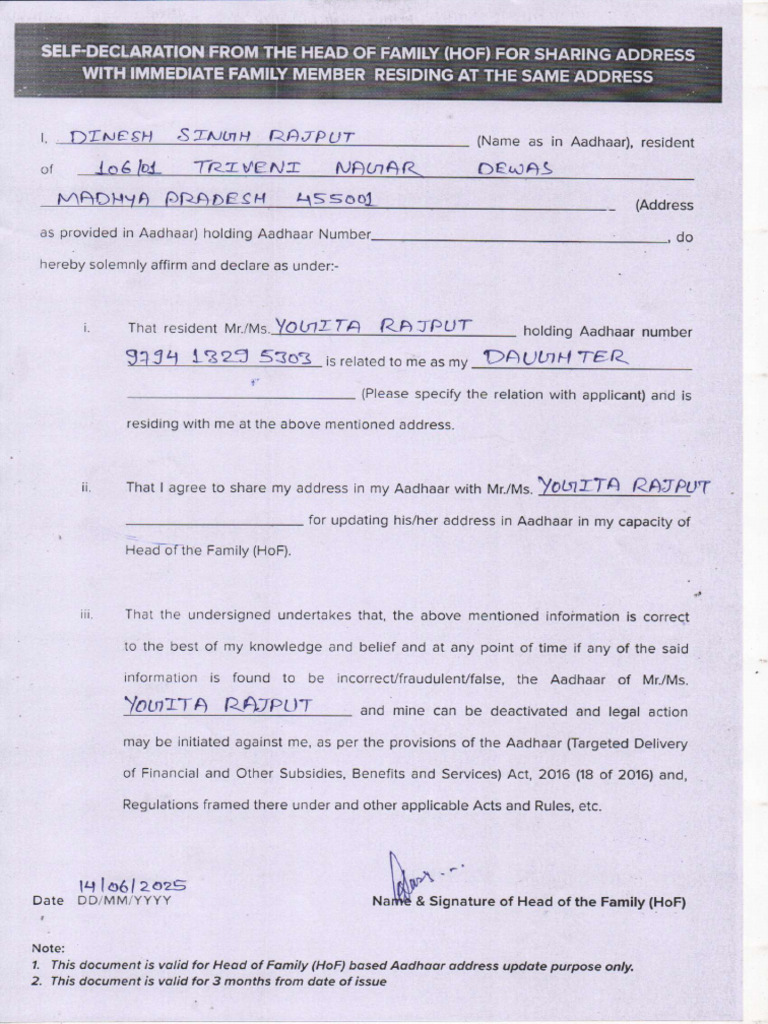 SELF-DECLARATION FROM THE HEAD OF FAMILY (HOF) FOR SHARING ADDRESS
WITH IMMEDIATE FAMILY MEMBER RESIDING AT THE SAME ADDRESS
I, DINESH SINGH RAJPUT (Name as in Aadhaar), resident
of 106/01 TRIVENI NAGAR DEWAS
MADHYA PRADESH 455001 (Address
as provided in Aadhaar) holding Aadhaar Number, do
hereby solemnly affirm and declare as under:-
i. That resident Mr./Ms. YOGITA RAJPUT holding Aadhaar number
9794 1329 5303 is related to me as my DAUGHTER
(Please specify the relation with applicant) and is
residing with me at the above mentioned address.
ii. That I agree to share my address in my Aadhaar with Mr./Ms. YOGITA RAJPUT
for updating his/her address in Aadhaar in my capacity of
Head of the Family (HoF).
iii. That the undersigned undertakes that, the above mentioned information is correct
to the best of my knowledge and belief and at any point of time if any of the said
information is found to be incorrect/fraudulent/false, the Aadhaar of Mr./Ms.
YOGITA RAJPUT and mine can be deactivated and legal action
may be initiated against me, as per the provisions of the Aadhaar (Targeted Delivery
of Financial and Other Subsidies, Benefits and Services) Act, 2016 (18 of 2016) and,
Regulations framed there under and other applicable Acts and Rules, etc.
14/06/2025
Date DD/MM/YYYY Name & Signature of Head of the Family (HoF)
Note:
1. This document is valid for Head of Family (HoF) based Aadhaar address update purpose only.
2. This document is valid for 3 months from date of issue